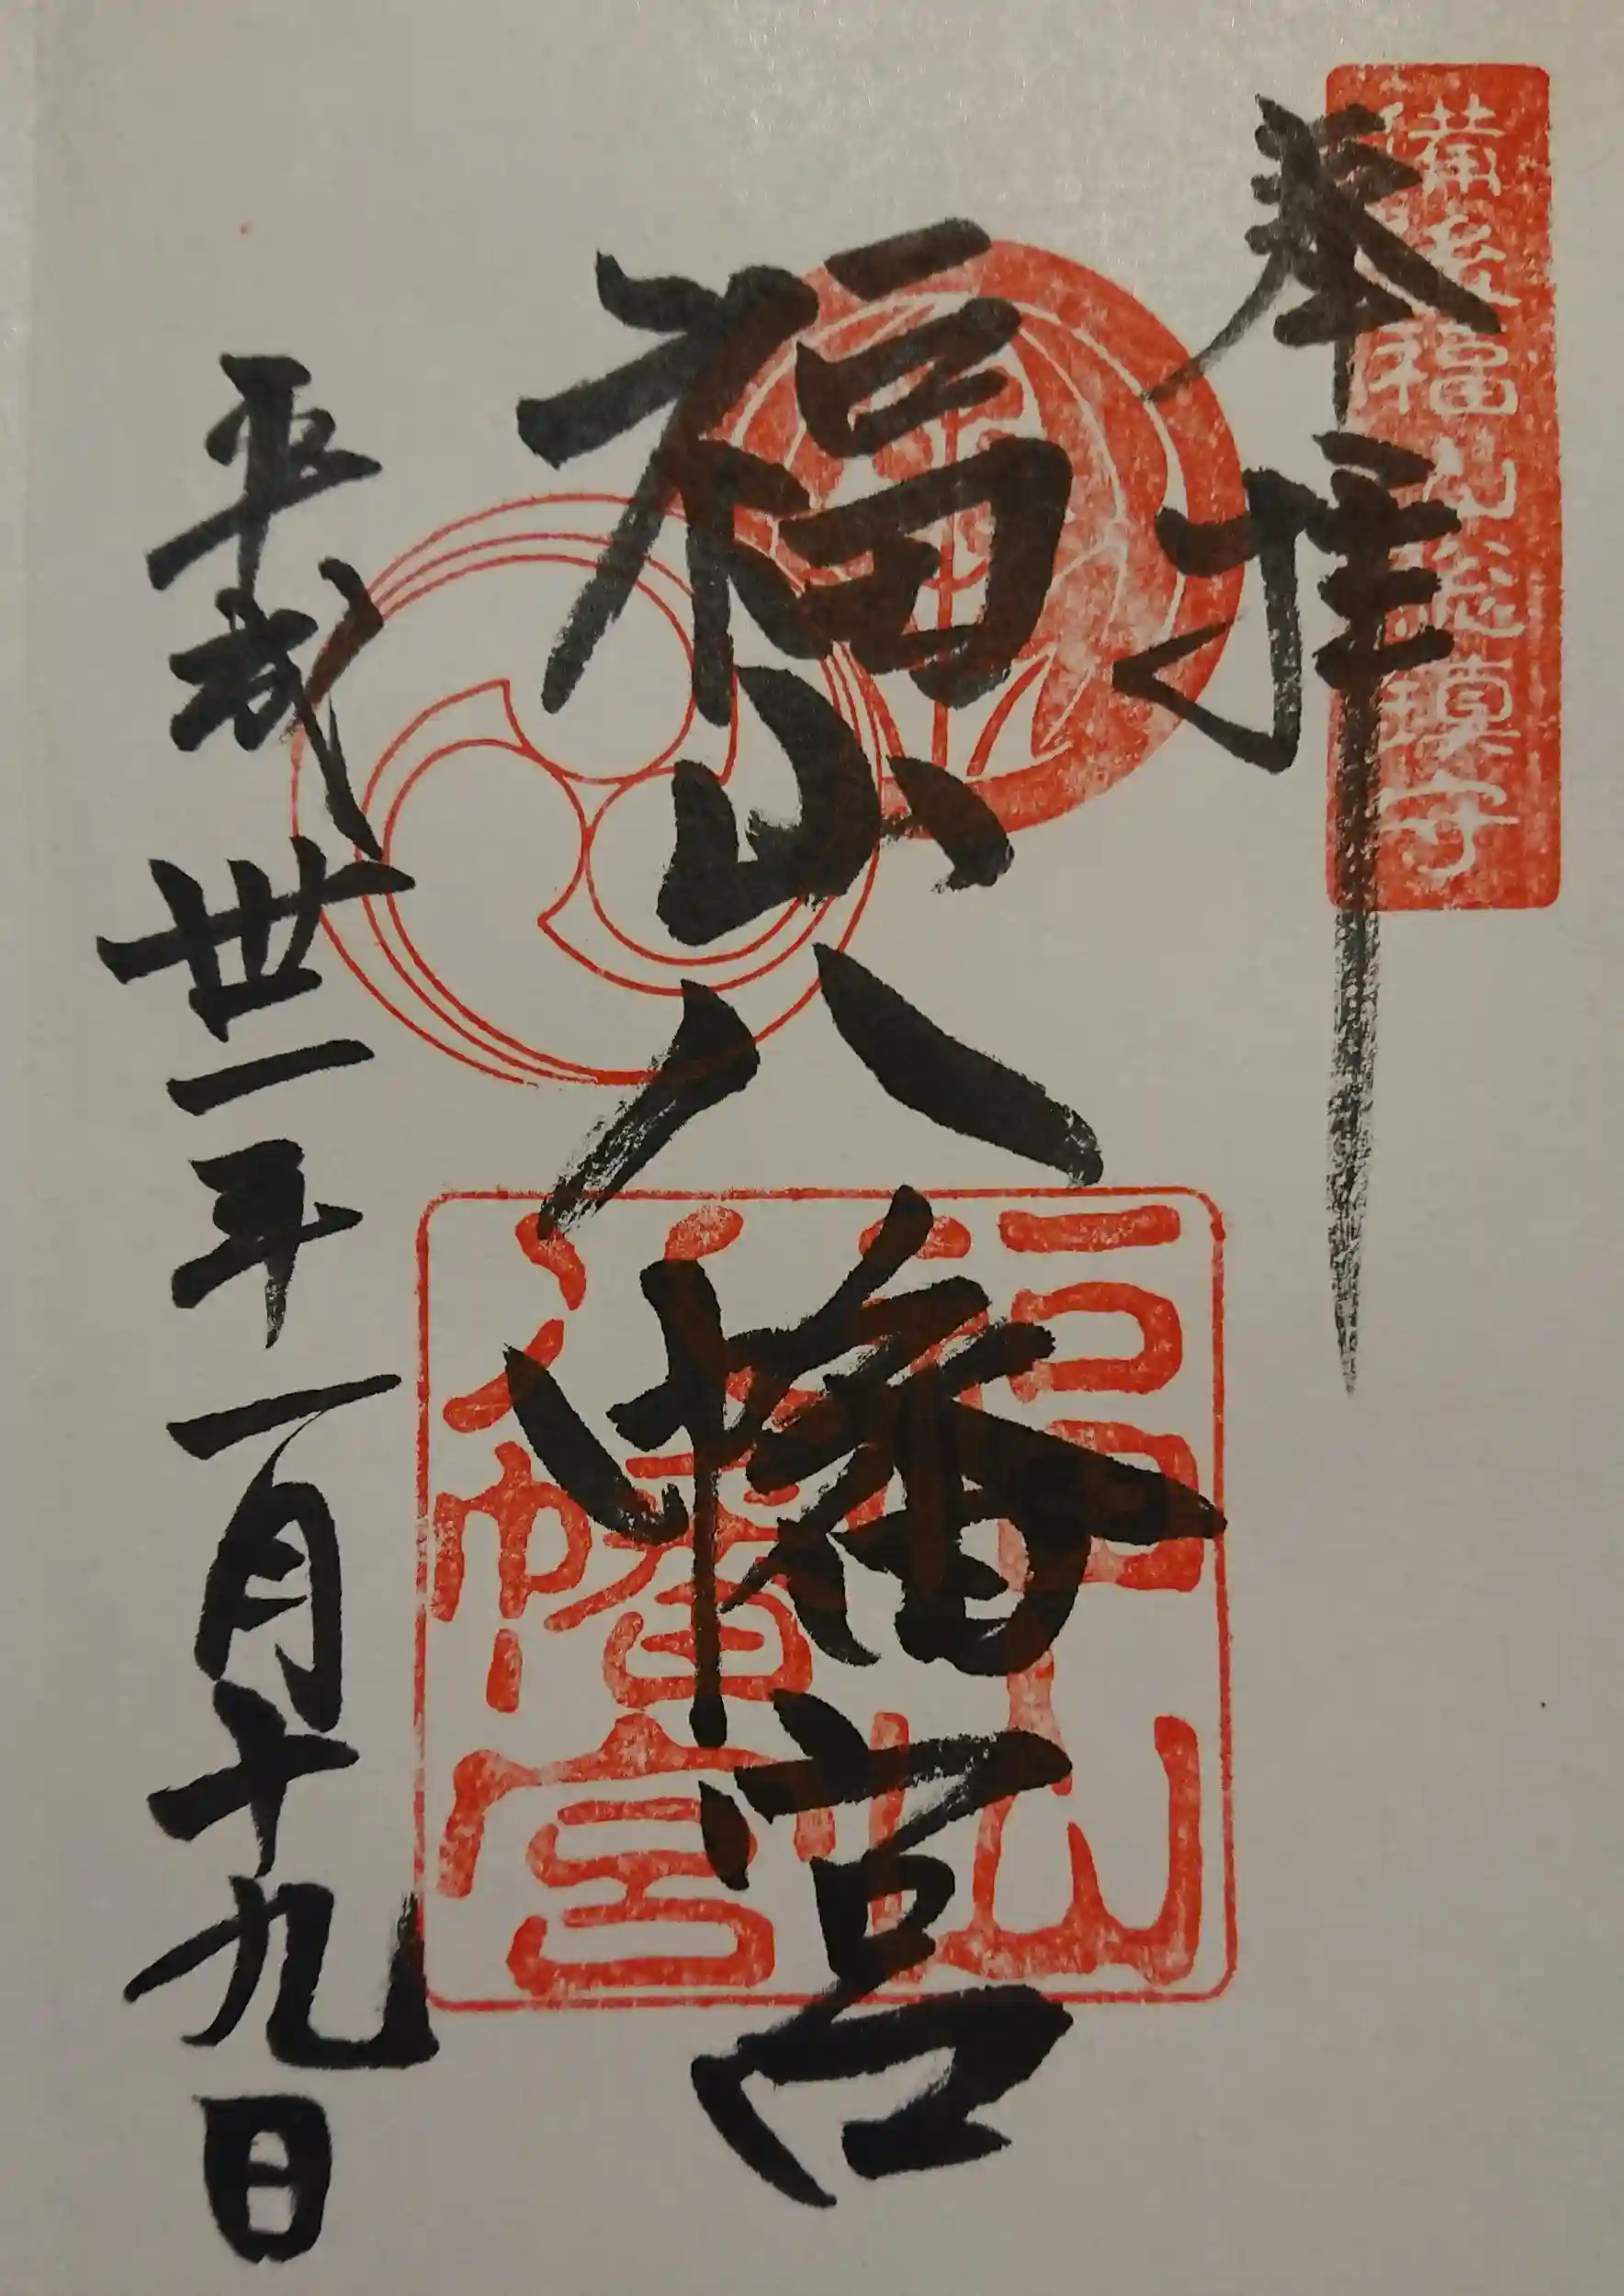 備後福山総鎮守
奉拝
福山八幡宮
福山
八幡宮
平成卅一年一月十九日